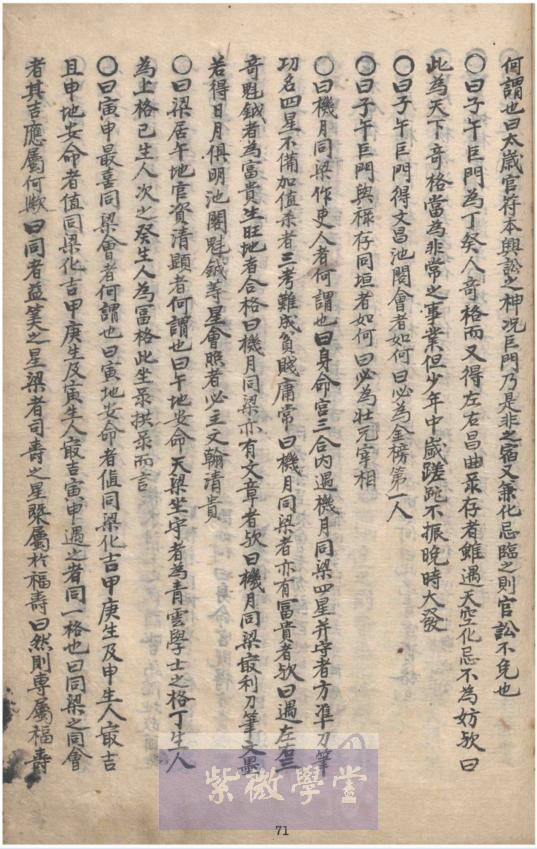 何謂也曰太歲官符本興訟之神况巨門乃是非之宿又兼化忌臨之則官訟不免也
〇曰子午巨門為丁癸人奇格而又得左右昌曲祿存者雖遇天空化忌不為妨欤曰
此為天下奇格當為非常之事業但少年中歲蹉跎不振晚時大發
〇曰子午巨門得文昌池閣會者如何曰必為金榜第一人
〇曰子午巨門與祿存同垣者如何曰必為壯元宰相
〇曰機月同梁作吏人者何謂也曰身命宮三合內遇機月同梁四星并守者方準刀筆
功名四星不備加值煞者三考難成貧賤庸常曰機月同梁者亦有富貴者欤曰遇左右三
奇魁鉞者為富貴生旺地者合格曰機月同梁亦有文章者欤曰機月同梁最利刀筆文墨
若得日月俱明池閣魁鉞等星會照者必主文翰清貴
〇曰梁居午地官資清顯者何謂也曰午地安命天梁坐守者為青雲學士之格丁生人
為上格己生人次之癸生人為富格此坐祿拱祿而言
〇曰寅申最喜同梁會者何謂也曰寅地安命者值同梁化吉甲庚生及申生人最吉
且申地安命者值同梁化吉甲庚生及寅生人最吉寅申遇之者同一格也曰同梁之同會
者其吉應屬何欤曰同者益筭之星梁者司壽之星槩屬於福壽曰然則專屬福壽
紫微學堂
71